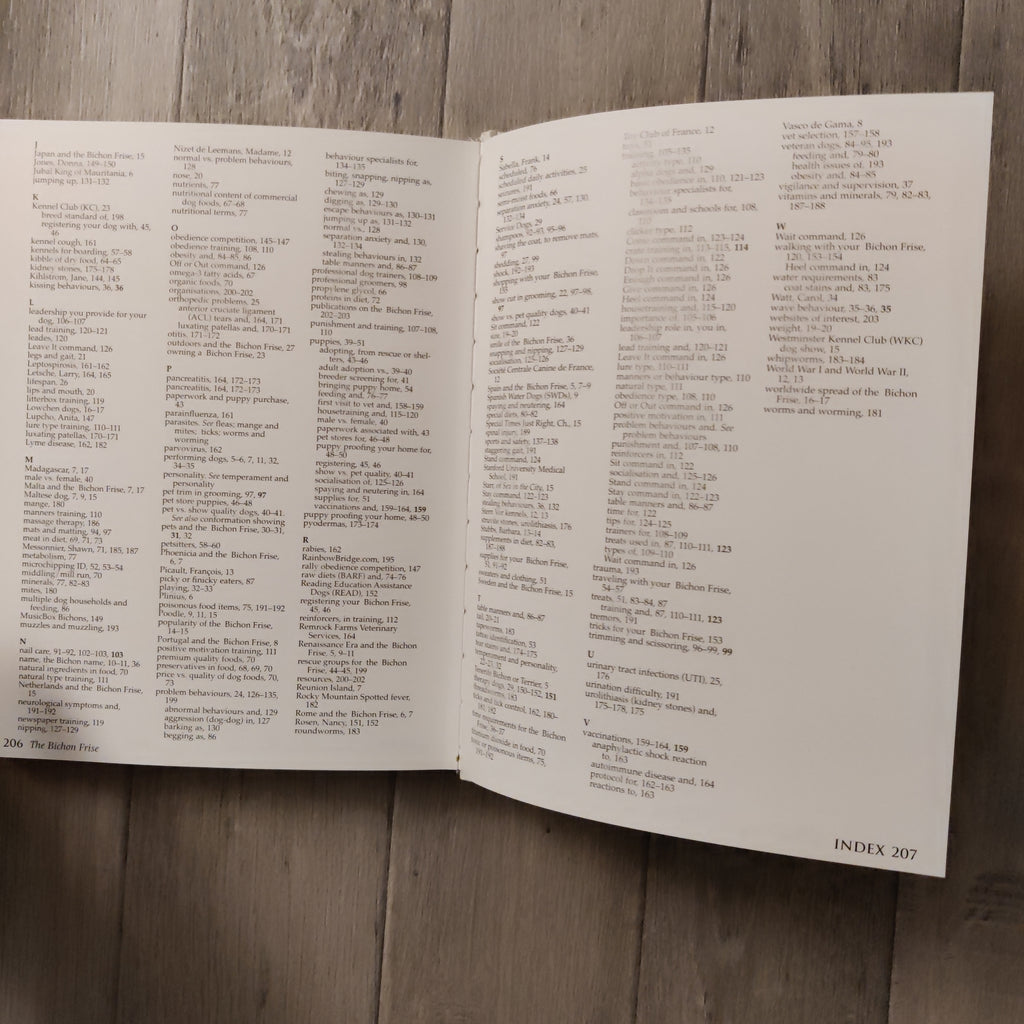 J
Japan and the Bichon Frise, 15
Jones, Donna, 149–150
Jubal King of Mauritania, 6
jumping up, 131–132
K
Kennel Club (KC), 23
breed standard of, 198
registering your dog with, 45,
46
kennel cough, 161
kennels for boarding, 57–58
kibble of dry food, 64–65
kidney stones, 175–178
Kihlstrom, Jane, 144, 145
kissing behaviours, 36, 36
L
leadership you provide for your
dog, 106–107
lead training, 120–121
leades, 120
Leave It command, 126
legs and gait, 21
Leptospirosis, 161–162
Letsche, Larry, 164, 165
lifespan, 26
lips and mouth, 20
litterbox training, 119
Lowchen dogs, 16–17
Lupcho, Anita, 147
lure type training, 110–111
luxating patellas, 170–171
Lyme disease, 162, 182
M
Madagascar, 7, 17
male vs. female, 40
Malta and the Bichon Frise, 7, 17
Maltese dog, 7, 9, 15
mange, 180
manners training, 110
massage therapy, 186
mats and matting, 94, 97
meat in diet, 69, 71, 73
Messonnier, Shawn, 71, 185, 187
metabolism, 77
microchipping ID, 52, 53–54
middling/mill run, 70
minerals, 77, 82–83
mites, 180
multiple dog households and
feeding, 86
MusicBox Bichons, 149
muzzles and muzzling, 193
N
nail care, 91–92, 102–103, 103
name, the Bichon name, 10–11, 36
natural ingredients in food, 70
natural type training, 111
Netherlands and the Bichon Frise,
15
neurological symptoms and,
191–192
newspaper training, 119
nipping, 127–129
206 The Bichon Frise
Nizet de Leemans, Madame, 12
normal vs. problem behaviours,
128
nose, 20
nutrients, 77
nutritional content of commercial
dog foods, 67–68
nutritional terms, 77
O
obedience competition, 145–147
obedience training, 108, 110
obesity and, 84–85, 86
Off or Out command, 126
omega-3 fatty acids, 67
organic foods, 70
organisations, 200–202
orthopedic problems, 25
anterior cruciate ligament
(ACL) tears and, 164, 171
luxating patellas and, 170–171
otitis, 171–172
outdoors and the Bichon Frise, 27
owning a Bichon Frise, 23
P
pancreatitis, 164, 172–173
pancreatitis, 164, 172–173
paperwork and puppy purchase,
43
parainfluenza, 161
parasites. See fleas; mange and
mites; ticks; worms and
worming
parvovirus, 162
performing dogs, 5–6, 7, 11, 32,
34–35
personality. See temperament and
personality
pet trim in grooming, 97, 97
pet store puppies, 46–48
pet vs. show quality dogs, 40–41.
See also conformation showing
pets and the Bichon Frise, 30–31,
31, 32
petsitters, 58–60
Phoenicia and the Bichon Frise,
6, 7
Picault, François, 13
picky or finicky eaters, 87
playing, 32–33
Plinius, 6
poisonous food items, 75, 191–192
Poodle, 9, 11, 15
popularity of the Bichon Frise,
14–15
Portugal and the Bichon Frise, 8
positive motivation training, 111
premium quality foods, 70
preservatives in food, 68, 69, 70
price vs. quality of dog foods, 70,
73
problem behaviours, 24, 126–135,
199
abnormal behaviours and, 129
aggression (dog-dog) in, 127
barking as, 130
begging as, 86
behaviour specialists for,
134–135
biting, snapping, nipping as,
127–129
chewing as, 129
digging as, 129–130
escape behaviours as, 130–131
jumping up as, 131–132
normal vs., 128
separation anxiety and, 130,
132–134
stealing behaviours in, 132
table manners and, 86–87
professional dog trainers, 108–109
professional groomers, 98
propylene glycol, 66
proteins in diet, 72
publications on the Bichon Frise,
202–203
punishment and training, 107–108,
110
puppies, 39–51
adopting, from rescue or shel-
ters, 43–46
adult adoption vs., 39–40
breeder screening for, 41
bringing puppy home, 54
feeding and, 76–77
first visit to vet and, 158–159
housetraining and, 115–120
male vs. female, 40
paperwork associated with, 43
pet stores for, 46–48
puppy proofing your home for,
48–50
registering, 45, 46
show vs. pet quality, 40–41
socialisation of, 125–126
spaying and neutering in, 164
supplies for, 51
vaccinations and, 159–164, 159
puppy proofing your home, 48–50
pyodermas, 173–174
R
rabies, 162
RainbowBridge.com, 195
rally obedience competition, 147
raw diets (BARF) and, 74–76
Reading Education Assistance
Dogs (READ), 152
registering your Bichon Frise,
45, 46
reinforcers, in training, 112
Remrock Farms Veterinary
Services, 164
Renaissance Era and the Bichon
Frise, 5, 9–11
rescue groups for the Bichon
Frise, 44–45, 199
resources, 200–202
Reunion Island, 7
Rocky Mountain Spotted fever,
182
Rome and the Bichon Frise, 6, 7
Rosen, Nancy, 151, 152
roundworms, 183
S
Sabella, Frank, 14
scheduled, 76
scheduled daily activities, 25
seizures, 191
semi-moist foods, 66
separation anxiety, 24, 57, 130,
132–134
Service Dogs, 29
shampoos, 92–93, 95–96
shaving the coat, to remove mats,
97
shedding, 27, 99
shock, 192–193
shopping with your Bichon Frise,
153
show cut in grooming, 22, 97–98,
97
show vs. pet quality dogs, 40–41
Sit command, 122
size, 19–20
smile of the Bichon Frise, 36
snapping and nipping, 127–129
socialisation, 125–126
Société Centrale Canine de France,
12
Spain and the Bichon Frise, 5, 7–9
Spanish Water Dogs (SWDs), 9
spaying and neutering, 164
special diets, 80–82
Special Times Just Right, Ch., 15
spinal injury, 189
sports and safety, 137–138
staggering gait, 191
Stand command, 124
Stanford University Medical
School, 191
Start, of Sex in the City, 15
Stay command, 122–123
stealing behaviours, 36, 132
Stem Vor kennels, 12, 13
struvite stones, urolithiasis, 176
Stubbs, Barbara, 13–14
supplements in diet, 82–83,
187–188
supplies for your Bichon Frise,
51, 91–92
sweaters and clothing, 51
Sweden and the Bichon Frise, 15
T
table manners and, 86–87
tail, 20–21
tapeworms, 183
tattoo identification, 53
tear stains and, 174–175
temperament and personality,
22–23, 32
Tenerife Bichon or Terrier, 5
therapy dogs, 29, 150–152, 151
threadworms, 183
ticks and tick control, 162, 180–
181, 182
time requirements for the Bichon
Frise, 36–37
titanium dioxide in food, 70
toxic or poisonous items, 75,
191–192
Toy Club of France, 12
toys, 51
training, 105–135
activity type, 110
alpha dogs and, 129
basic obedience in, 110, 121–123
behaviour specialists for,
134–135
classroom and schools for, 108,
110
clicker type, 112
Come command in, 123–124
crate training in, 113–115, 114
Down command in, 122
Drop It command in, 126
Enough command in, 126
Give command in, 126
Heel command in, 124
housetraining and, 115–120
importance of, 105–106
leadership role in, you in,
106–107
lead training and, 120–121
Leave It command in, 126
lure type, 110–111
manners or behaviour type, 110
natural type, 111
obedience type, 108, 110
Off or Out command in, 126
positive motivation in, 111
problem behaviours and. See
problem behaviours
punishment and, 107–108, 110
reinforcers in, 112
Sit command in, 122
socialisation and, 125–126
Stand command in, 124
Stay command in, 122–123
table manners and, 86–87
time for, 122
tips for, 124–125
trainers for, 108–109
treats used in, 87, 110–111, 123
types of, 109–110
Wait command in, 126
trauma, 193
traveling with your Bichon Frise,
54–57
treats, 51, 83–84, 87
training and, 87, 110–111, 123
tremors, 191
tricks for your Bichon Frise, 153
trimming and scissoring, 96–99, 99
U
urinary tract infections (UTI), 25,
176
urination difficulty, 191
urolithiasis (kidney stones) and,
175–178, 175
V
vaccinations, 159–164, 159
anaphylactic shock reaction
to, 163
autoimmune disease and, 164
protocol for, 162–163
reactions to, 163
Vasco de Gama, 8
vet selection, 157–158
veteran dogs, 84–95, 193
feeding and, 79–80
health issues of, 193
obesity and, 84–85
vigilance and supervision, 37
vitamins and minerals, 79, 82–83,
187–188
W
Wait command, 126
walking with your Bichon Frise,
120, 153–154
Heel command in, 124
water requirements, 83
coat stains and, 83, 175
Watt, Carol, 34
wave behaviour, 35–36, 35
websites of interest, 203
weight, 19–20
Westminster Kennel Club (WKC)
dog show, 15
whipworms, 183–184
World War I and World War II,
12, 13
worldwide spread of the Bichon
Frise, 16–17
worms and worming, 181
INDEX 207